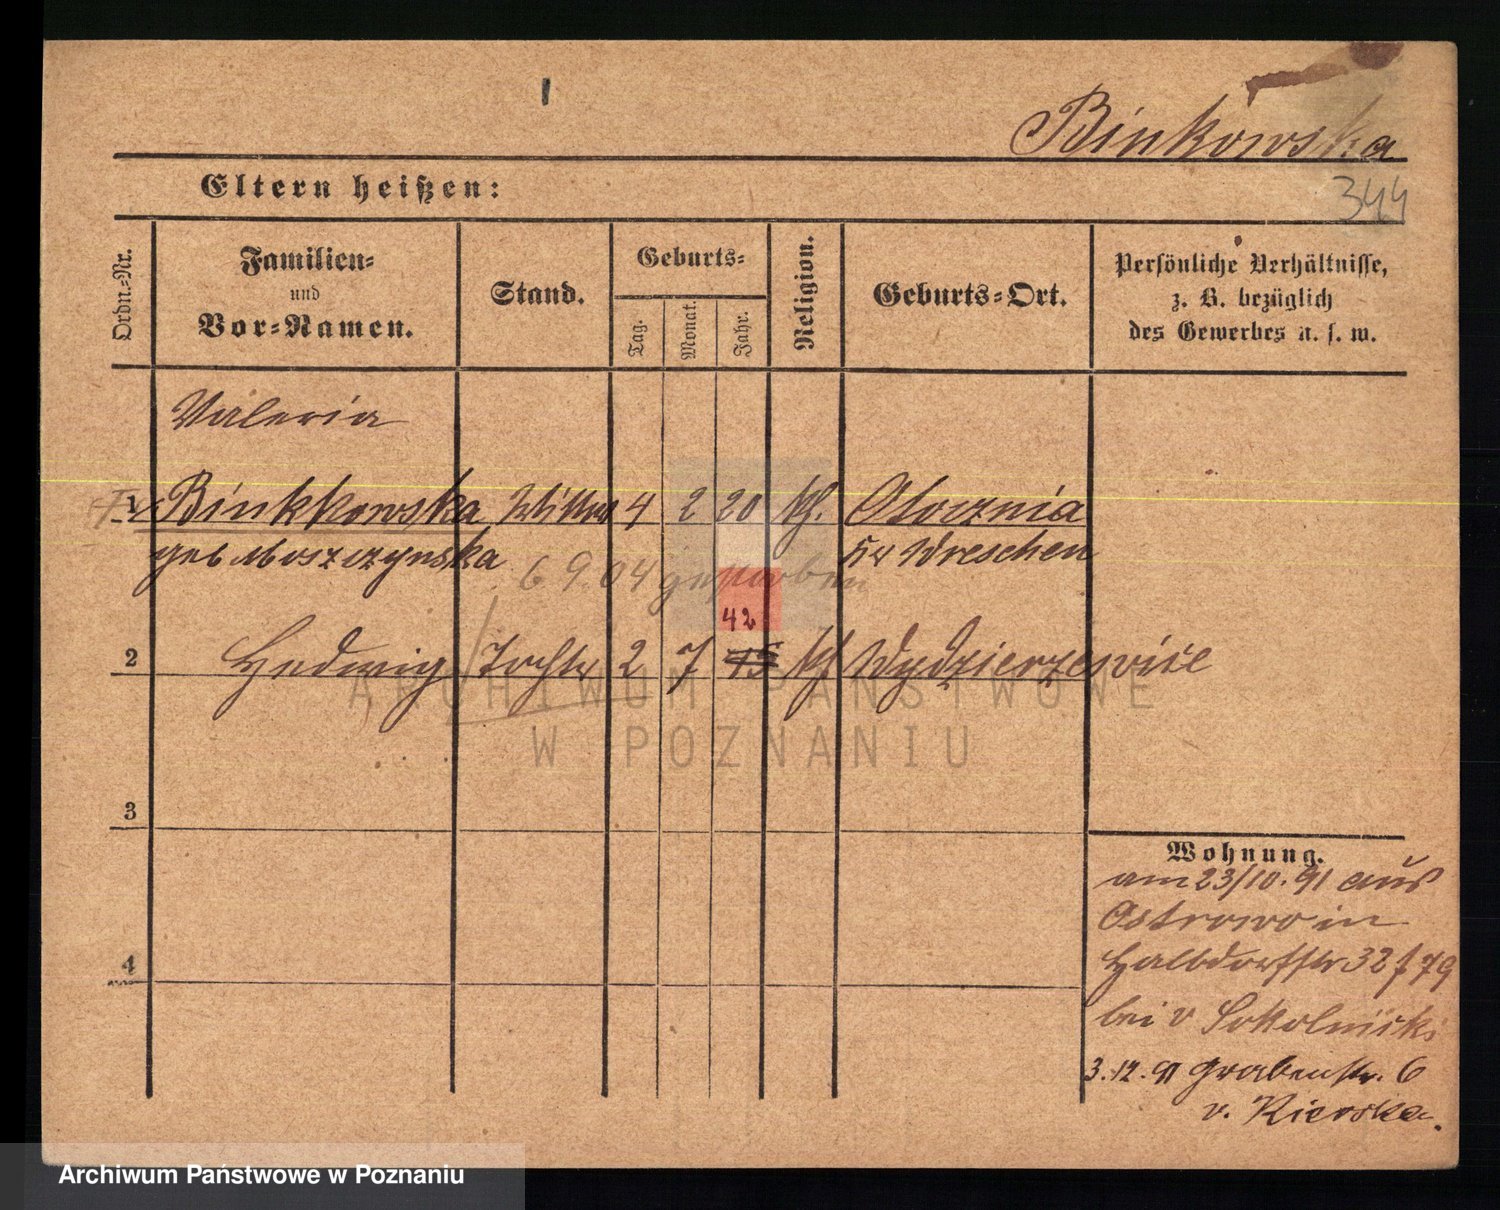 Binkowska
Eltern heißen:
344
Ordn.-Nr.
Familien-
und
Vor-Namen.
Stand.
Geburts-
Tag.
Monat.
Jahr.
Religion.
Geburts-Ort.
Persönliche Verhältnisse,
z. B. bezüglich
des Gewerbes u. s. w.
Valeria
1 Binkkowska Wittwe 4 2 20 kh. Otocznia
geb Moszczynska Kr Wreschen
6 9.04 gestorben
42
2 Hedwig Tochter 2 7 45 kh Wydzierzewice
3
4
Wohnung.
am 23/10. 91 aus
Ostrowo in
Halbdorfstr 32 f 79
bei v Sokolnicki
3.12.91 Grabenstr. 6
v. Kierska.
ARCHIWUM PAŃSTWOWE
W POZNANIU
Archiwum Państwowe w Poznaniu